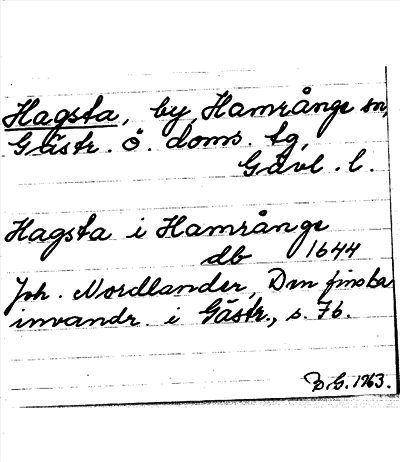 Hagsta, by, Hamrånge sn,
Gästr. ö. doms. tg,
Gävl. l.
Hagsta i Hamrånge
db 1644
Joh. Nordlander, Den finska
invandr. i Gästr., s. 76.
B.G. 1963.